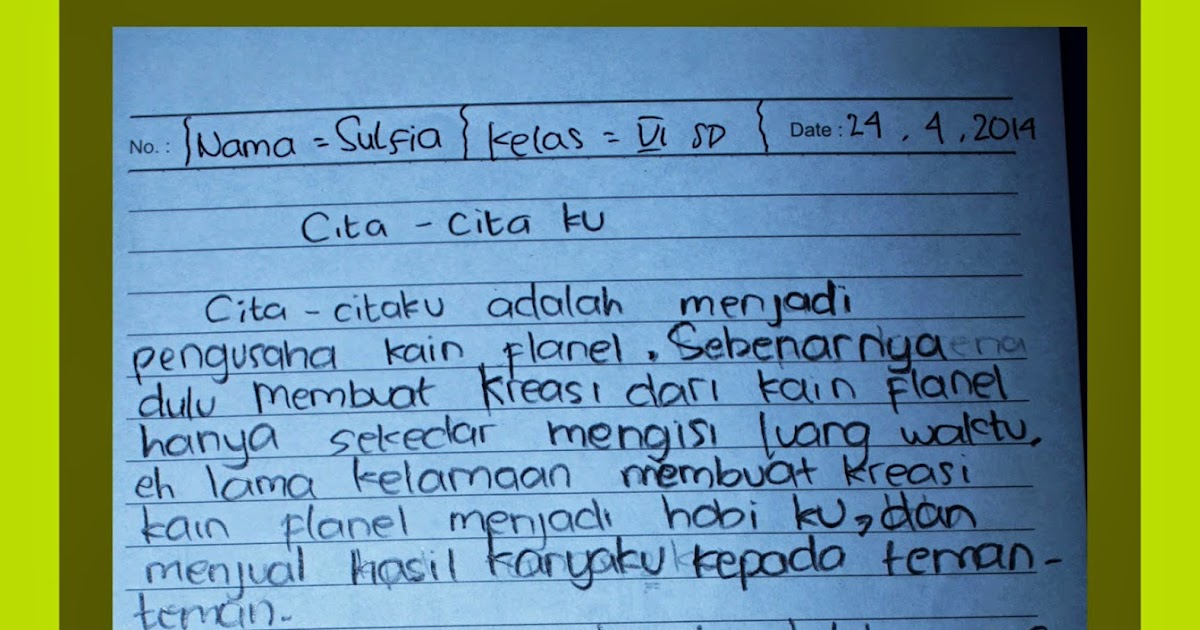 No. : Nama = Sulfia } kelas = VI SD } Date : 24 . 4 . 2014
Cita - Cita ku
Cita - citaku adalah menjadi
pengusaha kain flanel. Sebenarnya
dulu membuat kreasi dari kain flanel
hanya sekedar mengisi luang waktu,
eh lama kelamaan membuat kreasi
kain flanel menjadi hobi ku, dan
menjual hasil karyaku kepada teman-
teman.